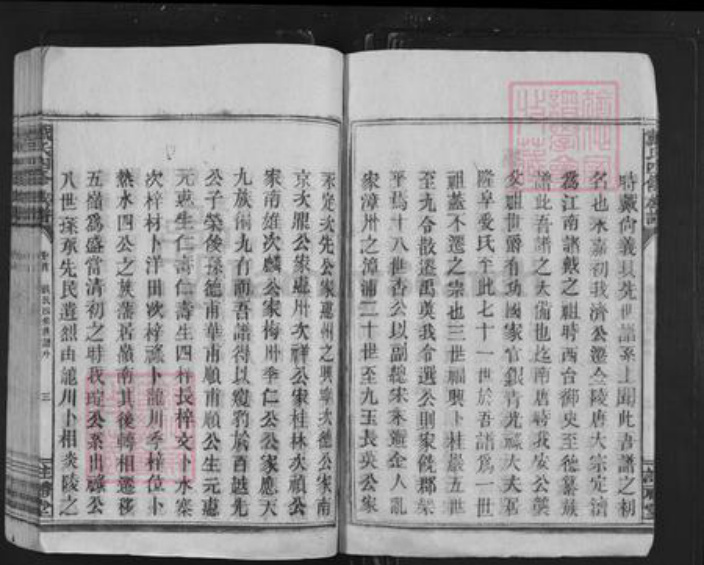 時戴尚義具先世譜系上聞此吾譜之初
名也永嘉初我濟公遷金陵唐大宗定濟
為江南諸戴之祖時西台御史至德纂族
譜此吾譜之大備也迄南唐時我安公奠
祖世爵有功國家官銀青光祿大夫軍
隆阜爰氏至此七十一世於吾譜為一世
祖蓋不遷之宗也三世福興卜桂巖五世
至九令散遷禹奠我令選公則家饒郡
平焉十八世杏公以副總宋末避金人亂
家漳州之漳浦二十世至九玉長英公家
永定次先公家惠州之興寧次德公家南
京次鼎公家處州次祥公家桂林次頎公
家南雄次麟公家梅州季仁公公家應天
九族徧九有而吾譜得以窺豹於酉越先
公子榮後孫德甫華甫順甫順公生元惠
元惠生仁壽仁壽生四梓長梓文卜水寨
次梓材卜洋田次梓祿卜龍川季梓位卜
熱水四公之族蕃居嶺南其後轉相遷移
五嶺為盛當清初之時我 公系出祿公
八世孫承先民遺烈由龍川卜相炎陵之
戴氏四修族譜
三